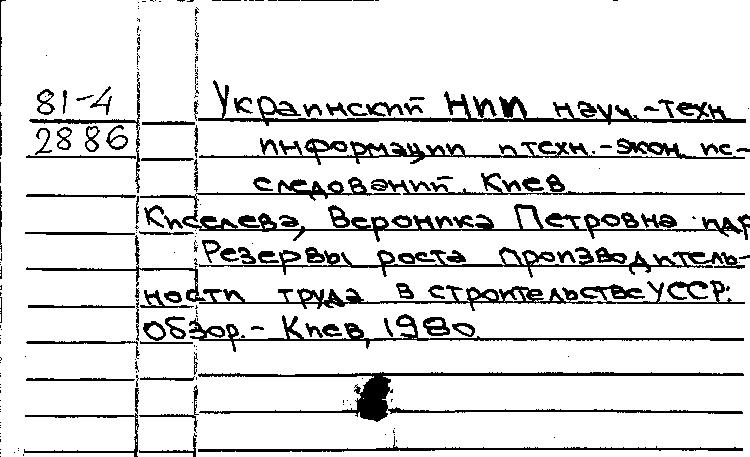 81-4
2886
Украинский НИИ науч.-техн
информации и техн.-экон. ис-
следований. Киев
Киселева, Вероника Петровна и др
Резервы роста производитель-
ности труда в строительстве УССР:
Обзор. - Киев, 1980